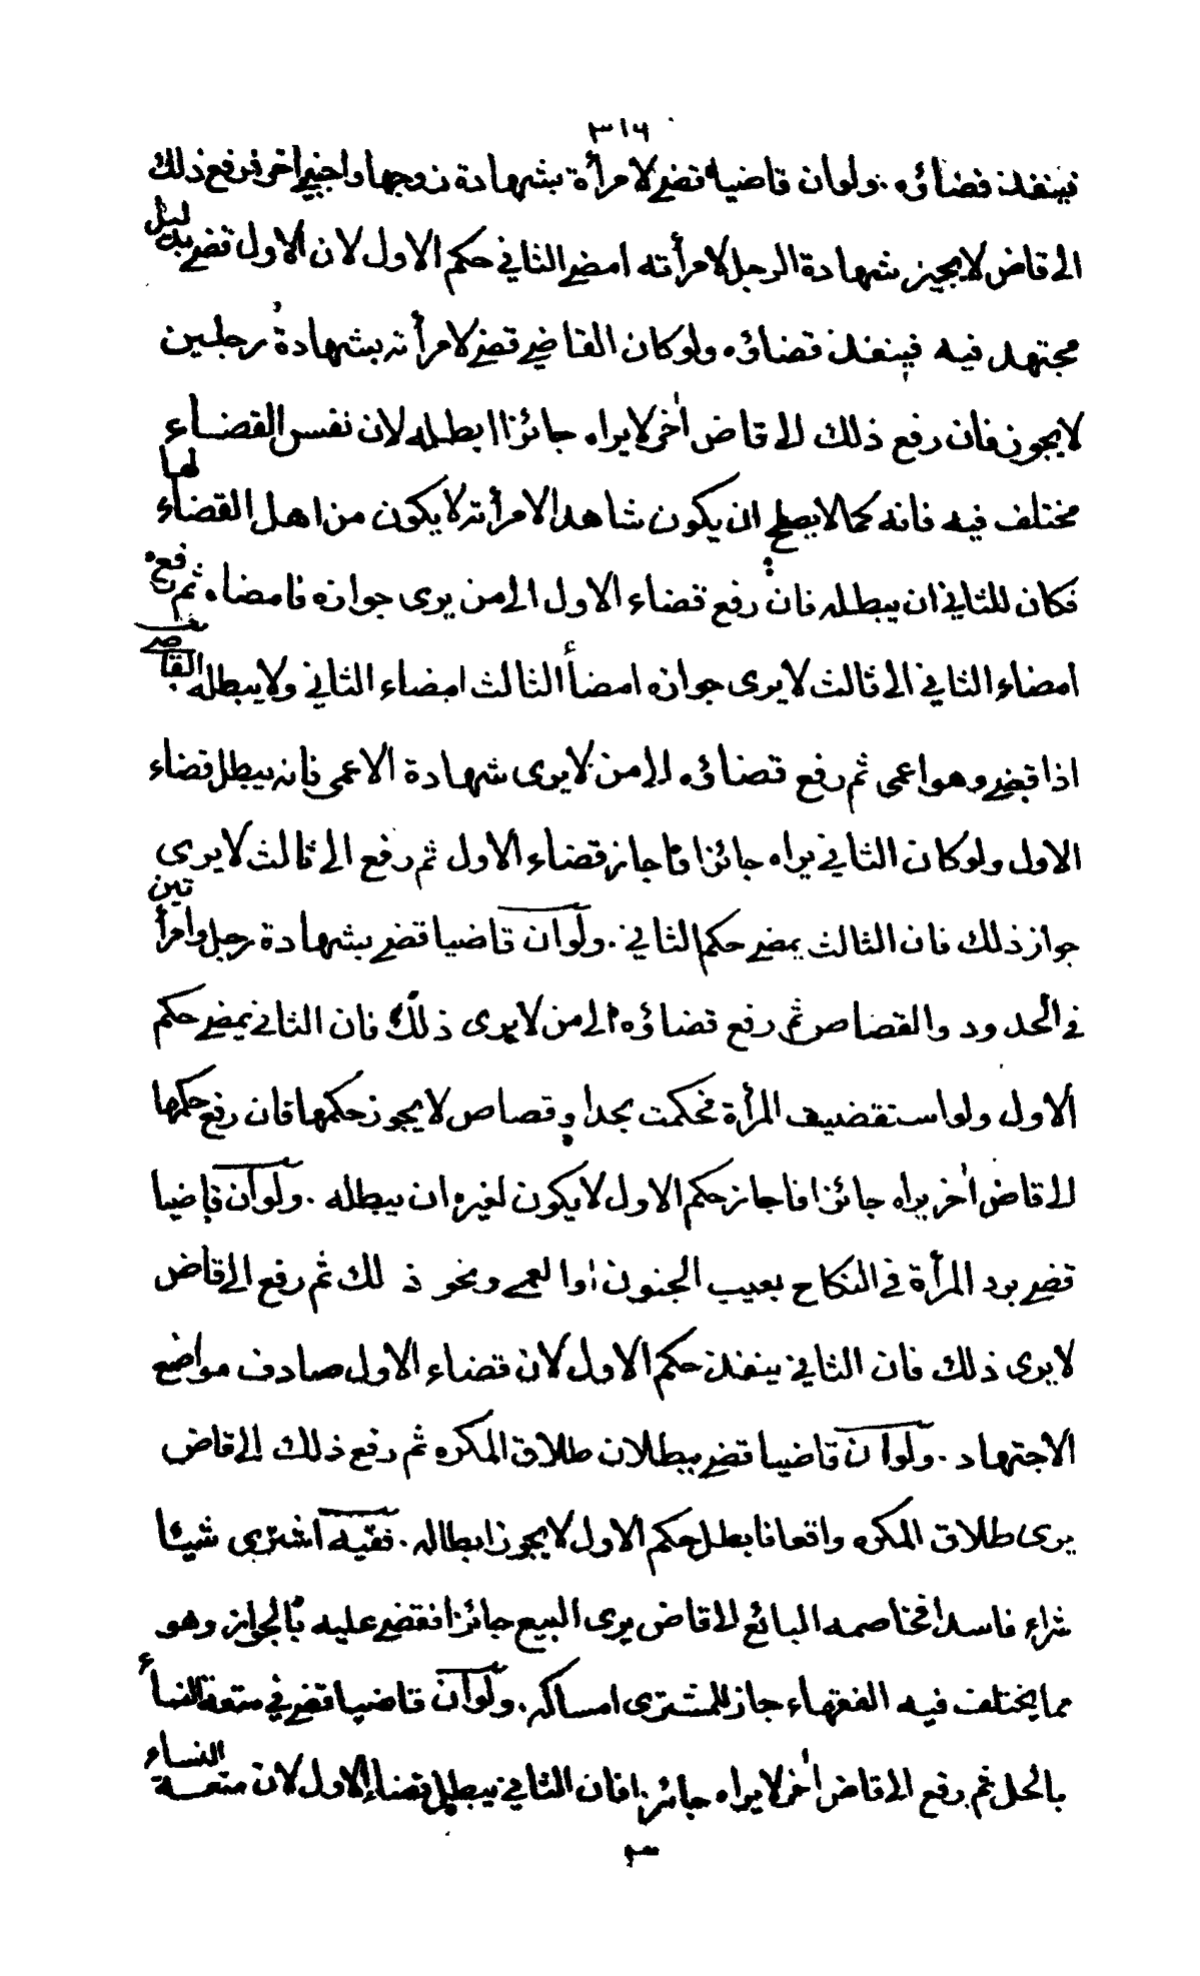 ٣١٦
فينفذ قضاؤه . ولو ان قاضيا قضى لامرأة بشهادة زوجها واجنبي اخر فرفع ذلك
الى قاض لا يجيز شهادة الرجل لامرأته امضى الثاني حكم الاول لان الاول قضى بدليل
مجتهد فيه فينفذ قضاؤه ولو كان القاضي قضى لامرأته بشهادة رجلين
لا يجوز فان رفع ذلك الى قاض أخر لا يراه جائزا ابطله لان نفس القضاء
مختلف فيه فانه كما لا يصلح ان يكون شاهدا لامرأته لا يكون من اهل القضاء لها
فكان للثاني ان يبطله فان رفع قضاء الاول الى من يرى جوازه فامضاه ثم رفع
امضاء الثاني الى ثالث لا يرى جوازه امضأ الثالث امضاء الثاني ولا يبطله القاضي
اذا قضى وهو اعمى ثم رفع قضاؤه الى من لا يرى شهادة الاعمى فانه يبطل قضاء
الاول ولو كان الثاني يراه جائزا فاجاز قضاء الاول ثم رفع الى ثالث لا يرى
جواز ذلك فان الثالث يمضى حكم الثاني . ولو ان قاضيا قضى بشهادة رجل وامرأتين
في الحدود والقصاص ثم رفع قضاؤه الى من لا يرى ذلك فان الثاني يمضى حكم
الاول ولو استقضيت المرأة فحكمت بحد او قصاص لا يجوز حكمها فان رفع حكمها
الى قاض أخر يراه جائزا فاجاز حكم الاول لا يكون لغيره ان يبطله . ولو ان قاضيا
قضى برد المرأة في النكاح بعيب الجنون او العمى ونحو ذلك ثم رفع الى قاض
لا يرى ذلك فان الثاني ينفذ حكم الاول لان قضاء الاول صادف مواضع
الاجتهاد . ولو ان قاضيا قضى ببطلان طلاق المكره ثم رفع ذلك الى قاض
يرى طلاق المكره واقعا فابطل حكم الاول لا يجوز ابطاله . فقيه اشترى شيئا
شراء فاسدا فخاصمه البائع الى قاض يرى البيع جائزا فقضى عليه بالجواز وهو
مما يختلف فيه الفقهاء جاز للمشترى امساكه . ولو ان قاضيا قضى في متعة النساء
بالحل ثم رفع الى قاض أخر لا يراه جائزا فان الثاني يبطل قضاء الاول لان متعة النساء